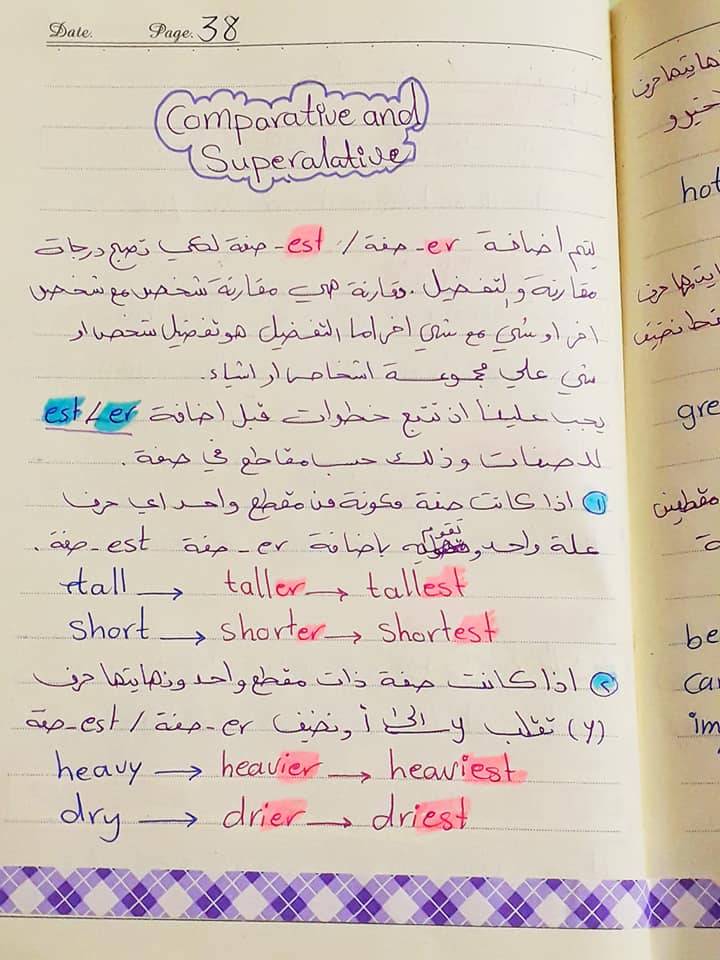 Date. Page. 38
Comparative and
Superalative
يتم اضافة er- صفة / est- صفة لكي تصبح درجات
مقارنة والتفضيل. مقارنة هي مقارنة شخص مع شخص
اخر او شي مع شي اخر اما التفضيل هو تفضيل شخص او
شي علي مجموعة اشخاص او اشياء.
يجب علينا ان نتبع خطوات قبل اضافة est / er
للصفات وذلك حسب مقاطع في صفة.
١ اذا كانت صفة مكونة من مقطع واحد اي حرف
علة واحد نقوم باضافة er- صفة est- صفة.
tall → taller → tallest
short → shorter → shortest
٢ اذا كانت صفة ذات مقطع واحد ونهايتها حرف
(y) تقلب y الى i ونضيف er- صفة / est- صفة
heavy → heavier → heaviest
dry → drier → driest
هايتها حرف
hot
ايتها حرف
gre
مقطعين
be
car
im